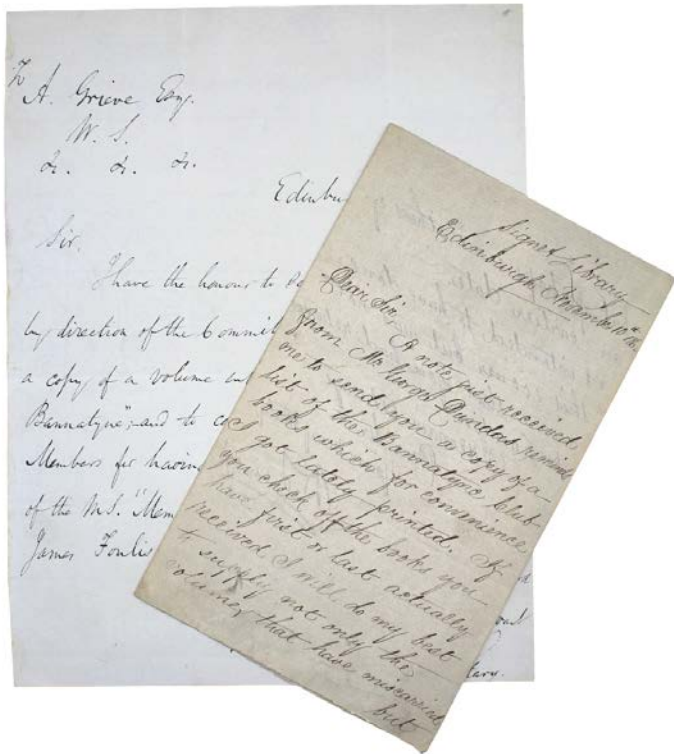 To
A. Grieve Esq.
W. S.
&. &. &.
Edinbu
Sir.
I have the honour to
by direction of the Committ
a copy of a volume
Bannatyne", and to co
Members for having
of the M.S. "Mem
James Foulis
lary.
Signet Library
Edinburgh November 10th
Dear Sir,
A note just received
from Mr George Dundas reminds
me to send you a copy of a
list of the Bannatyne Club
books which for convenience
I got lately printed. If
you check off the books you
have first or last actually
received I will do my best
to supply not only the
volumes that have miscarried
but